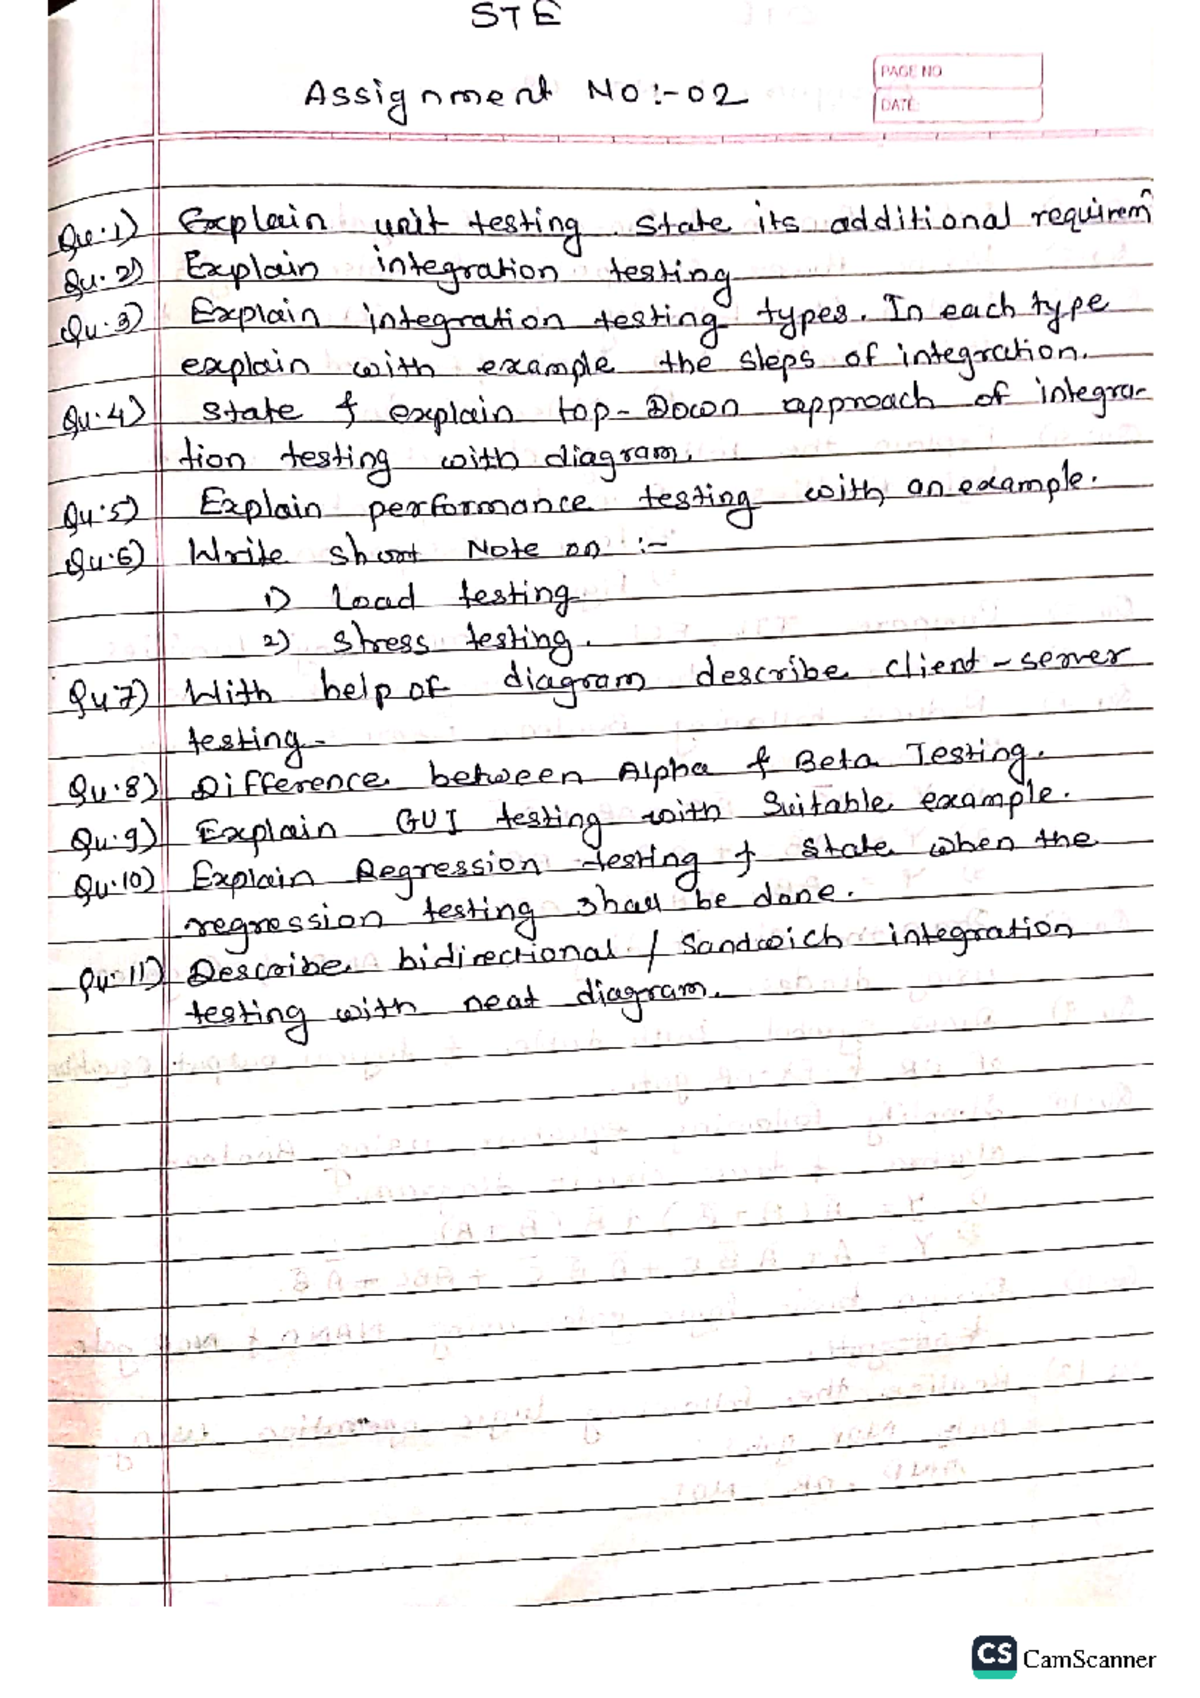 STE
Assignment No:-02
PAGE NO
DATE:
Qu.1) Explain unit testing. State its additional requirem
Qu.2) Explain integration testing
Qu.3) Explain integration testing types. In each type
explain with example the steps of integration.
Qu.4) State & explain top-Down approach of integra-
tion testing with diagram.
Qu.5) Explain performance testing with an example.
Qu.6) Write short Note on :-
1) Load testing
2) Stress testing.
Qu7) With help of diagram describe client-server
testing.
Qu.8) Difference between Alpha & Beta Testing.
Qu.9) Explain GUI testing with Suitable example.
Qu.10) Explain Regression testing & state when the
regression testing shall be done.
Qu.11) Describe bidirectional / Sandwich integration
testing with neat diagram.
CS CamScanner